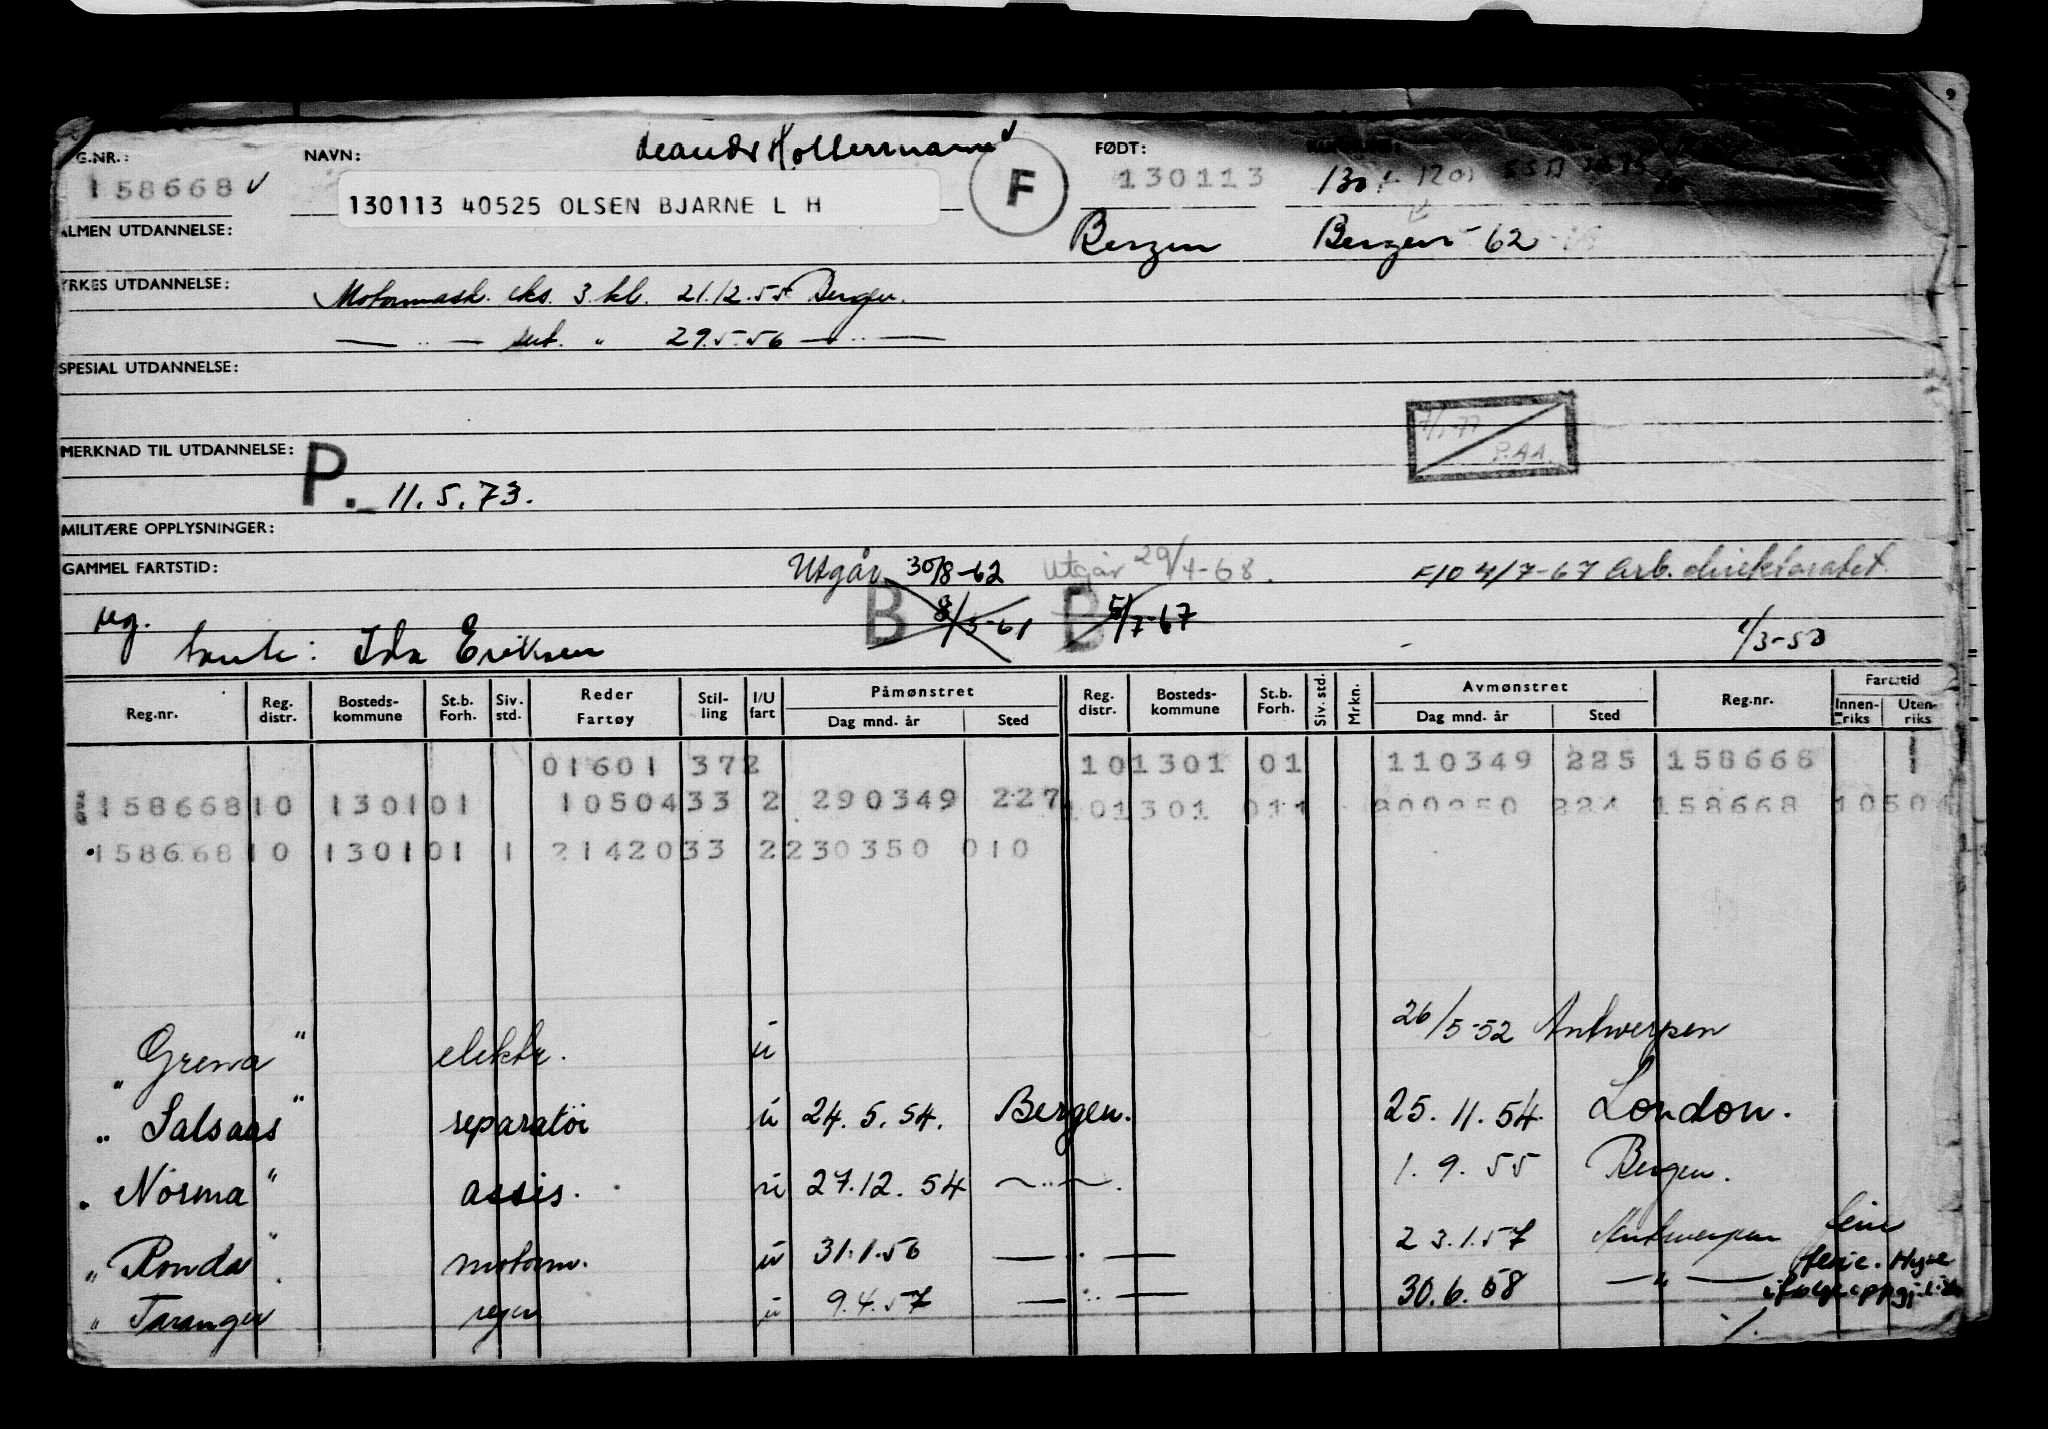 Leander Hollermann
G.NR.: NAVN: F FØDT:
158668 130113
130113 40525 OLSEN BJARNE L H
ALMEN UTDANNELSE: Bergen Bergen 62
YRKES UTDANNELSE: Motormask. eks. 3. kl. 21.12.55 Bergen.
— " — sert. " 29.5.56 — " —
SPESIAL UTDANNELSE:
7/1-77 P.AA.
MERKNAD TIL UTDANNELSE: P. 11.5.73.
MILITÆRE OPPLYSNINGER:
GAMMEL FARTSTID: Utgår 30/8-62 Utgår 29/4-68. F10 4/7-67 Arb. direktoratet
reg. B 8/5-61 B 5/7-67
tante: Ida Eriksen 1/3-50
Reg.nr. Reg. distr. Bosteds-kommune St.b. Forh. Siv. std. Reder Fartøy Stil-ling I/U fart Påmønstret Dag mnd. år Sted Reg. distr. Bosteds-kommune St.b. Forh. Siv. std. Mrkn. Avmønstret Dag mnd. år Sted Reg.nr. Fartstid Innen-riks Uten-riks
01601 372 101301 01 110349 225 158668
158668 10 1301 01 10504 33 2 290349 227 101301 011 200250 224 158668 10504
158668 10 1301 01 1 21420 33 2 230350 010
"Grena" elektr. u 26/5-52 Antwerpen
"Salsaas" reparatør u 24.5.54. Bergen. 25.11.54. London.
"Norma" assis. u 27.12.54 — " —. 1.9.55 Bergen.
"Ronda" motorm. u 31.1.56 — " — 23.1.57 Antwerpen
"Taranger" repr u 9.4.57 — " — 30.6.58 — " —
ferie. Hyre